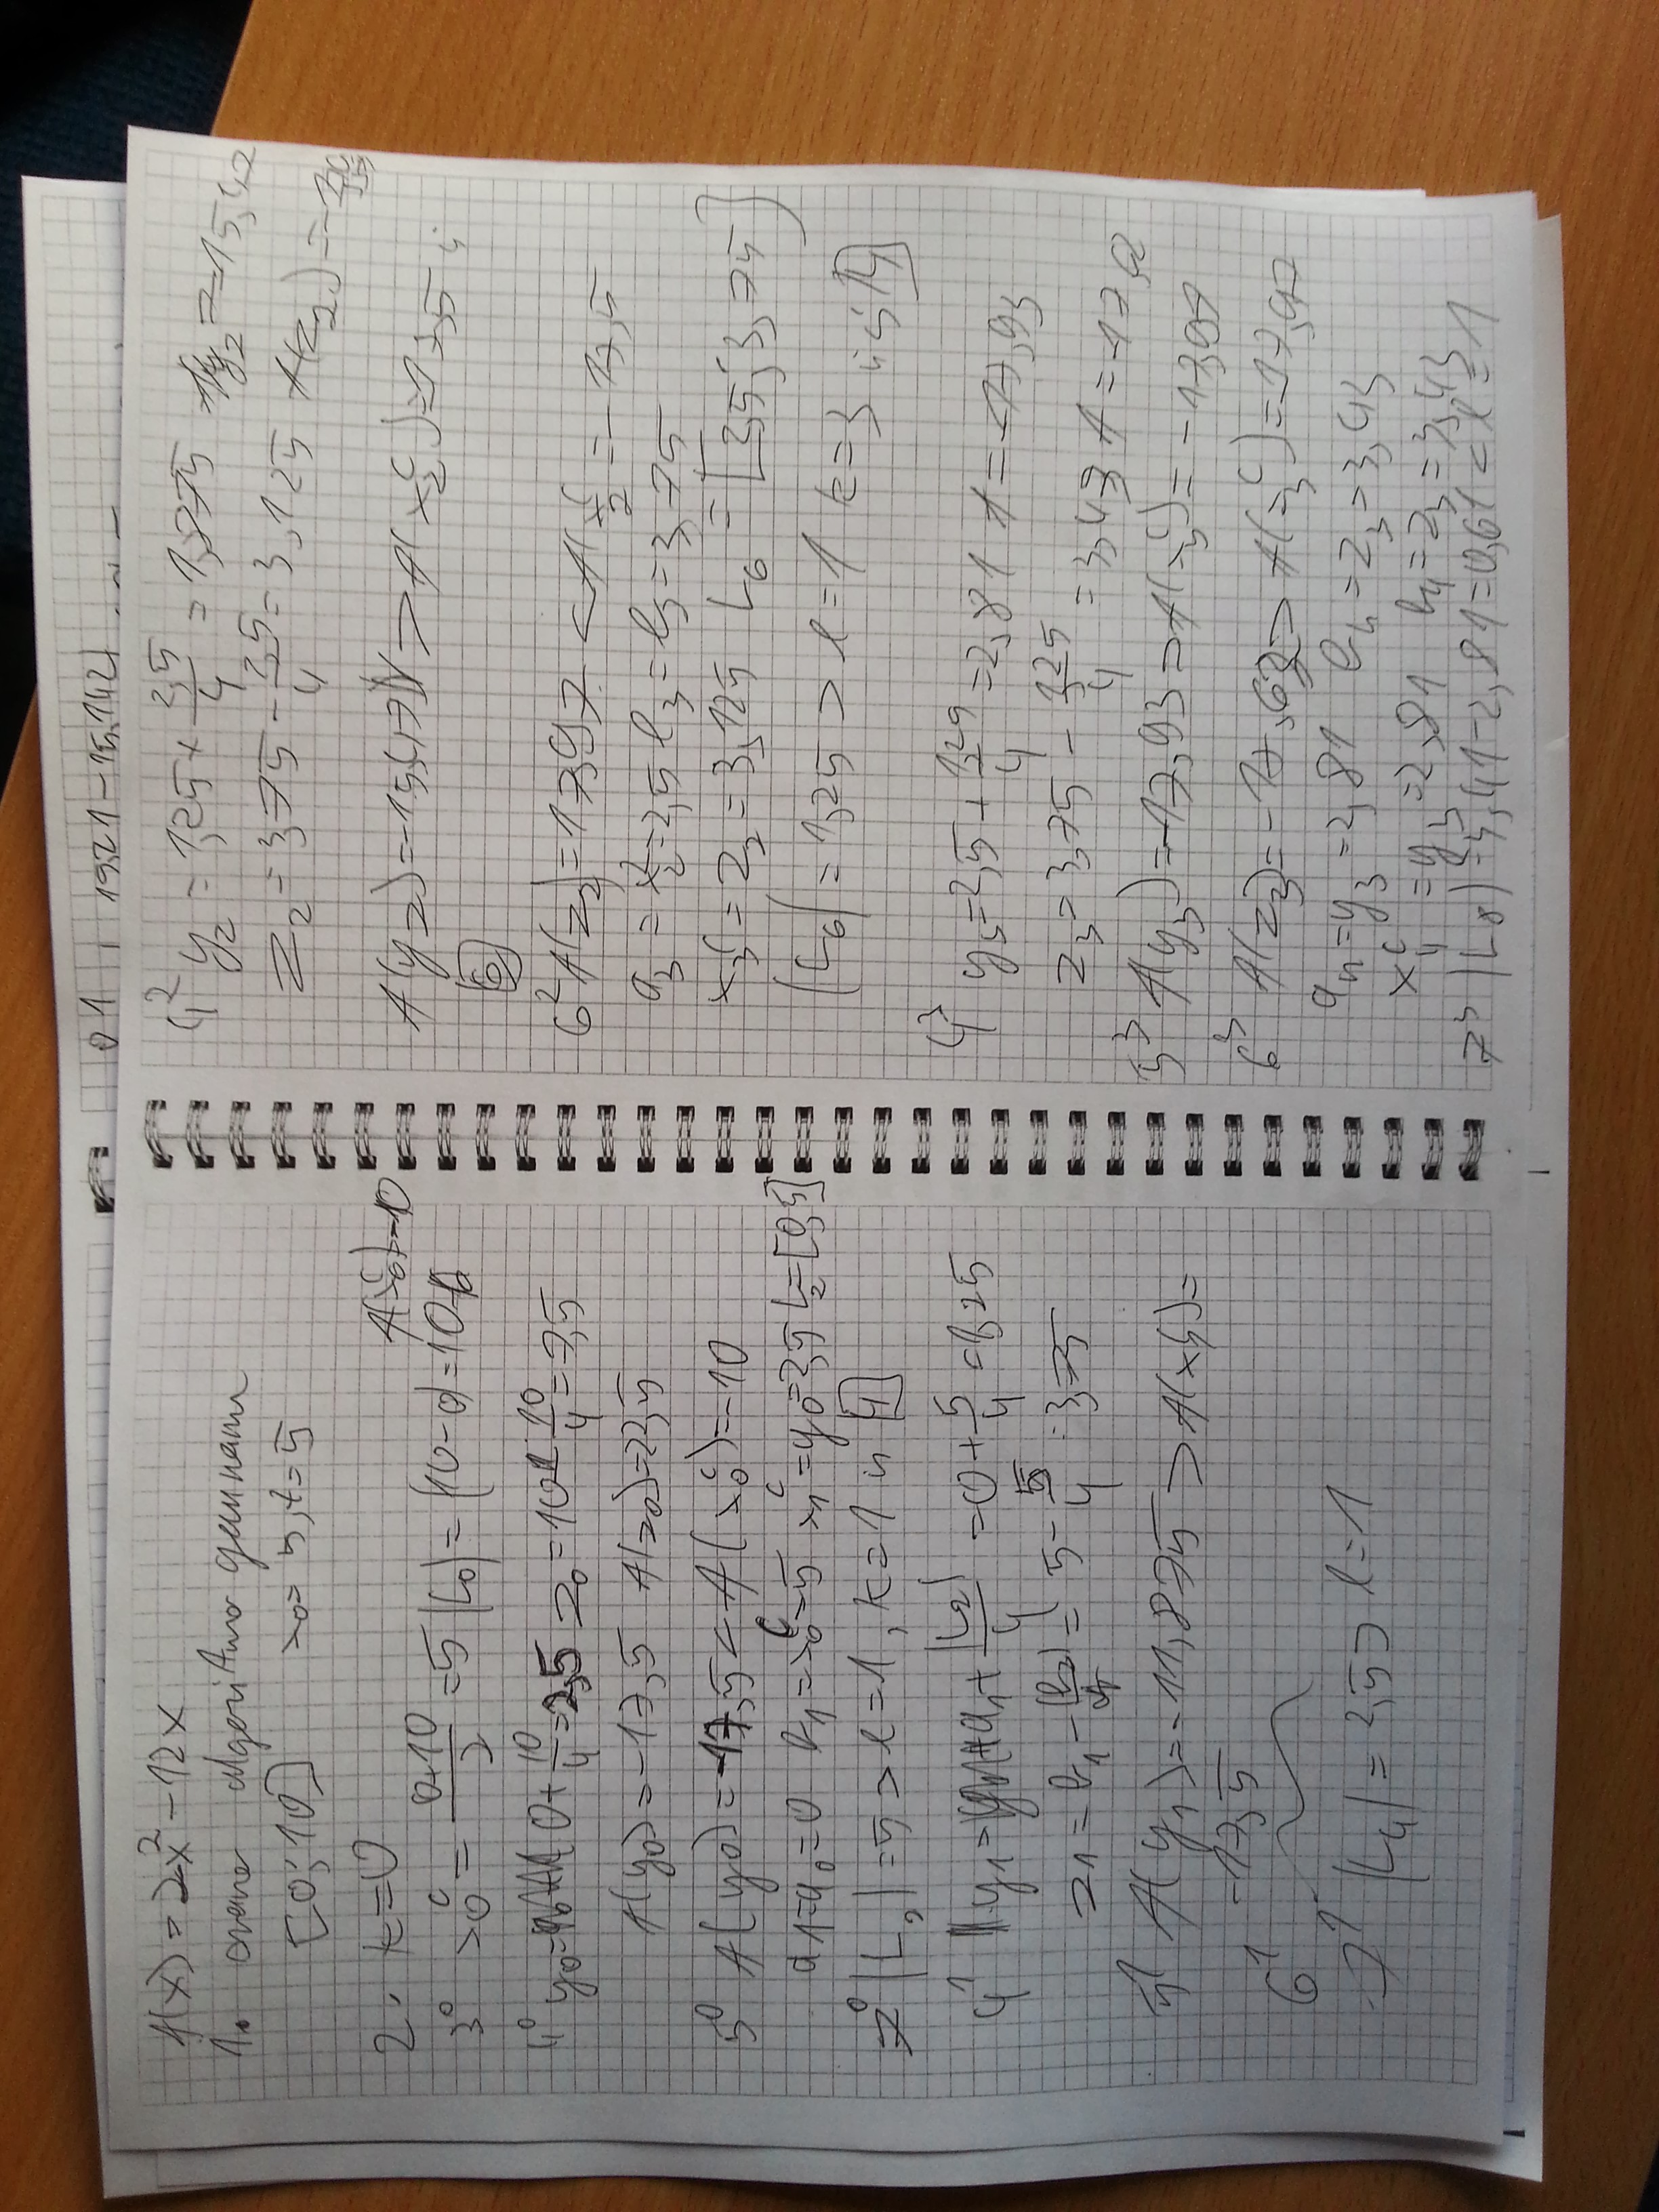 f(x) = 2x² - 12x
1. algoritmo gauname
[0; 10] x₀ = 5, t = 5
2. k = 0
f(x₀ᶜ) = -10
3⁰ x₀ᶜ = (0+10)/2 = 5 |L₀| = |10-0| = 10
4⁰ y₀ = 0 + 10/4 = 2,5 z₀ = 10 - 10/4 = 7,5
f(y₀) = -17,5 f(z₀) = 22,5
5⁰ f(y₀) = -17,5 < f(x₀ᶜ) = -10
a₁ = a₀ = 0 b₁ = x₀ᶜ = 5 x₁ᶜ = y₀ = 2,5 L₂ = [0,5]
7⁰ |L₂| = 5 > l = 1, k = 1 į 4
4¹ y₁ = a₁ + |L₂|/4 = 0 + 5/4 = 1,25
z₁ = b₁ - |L₂|/4 = 5 - 5/4 = 3,75
5¹ f(y₁) = -11,875 > f(x₁ᶜ) =
-17,5
6¹
7¹ |L₄| = 2,5 > l = 1
01 19,21 - 15,142|
4² y₂ = 1,25 + 2,5/4 = 1,875 f(y₂) = -15,42
z₂ = 3,75 - 2,5/4 = 3,125 f(z₂) =
f(y₂) = > f(x₂ᶜ) = 17,5 į
6
6² f(z₂) = 17,97 < f(x₂ᶜ = -17,5
a₃ = x₂ᶜ = 2,5 b₃ = b₃ = 3,75
x₃ᶜ = z₂ = 3,125 L₆ = [2,5; 3,75]
|L₆| = 1,25 > l = 1 k = 3 4
4³ y₃ = 2,5 + 1,25/4 = 2,81 f = -17,93
z₃ = 3,75 - 1,25/4 = 3,43 f = -17,6
5³ f(y₃) = -17,93 > f(x₃ᶜ) = -17,97
6³ f(z₃) = -17,62 > f(x₃ᶜ) = 17,97
a₄ = y₃ = 2,81 b₄ = z₃ = 3,43
x₄ᶜ = y₃ = 2,81 b₄ = z₃ = 3,43
7³ |L₈| = 3,41 - 2,81 = 0,61 < l = 1